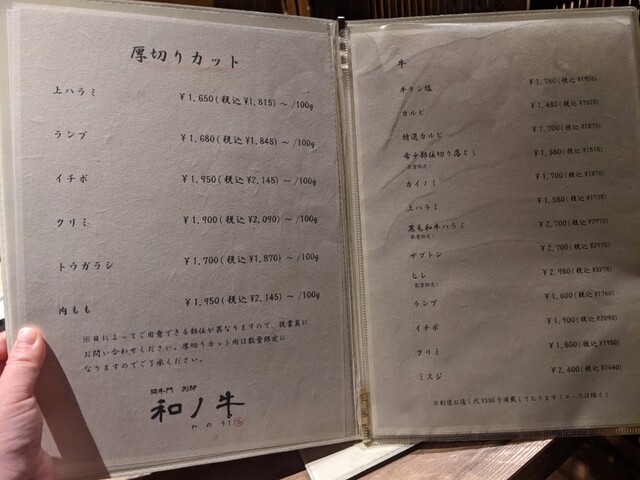 厚切りカット
上ハラミ ¥1,650(税込¥1,815)～/100g
ランプ ¥1,680(税込¥1,848)～/100g
イチボ ¥1,950(税込¥2,145)～/100g
クリミ ¥1,900(税込¥2,090)～/100g
トウガラシ ¥1,700(税込¥1,870)～/100g
内もも ¥1,950(税込¥2,145)～/100g
※日によってご用意できる部位が異なりますので、従業員に
お問い合わせください。厚切りカット肉は数量限定に
なりますのでご了承ください。
和ノ牛
わのうし
牛
牛タン塩 ¥1,760(税込¥1936)
カルビ ¥1,480(税込¥1628)
特選カルビ ¥1,700(税込¥1870)
希少部位切り落とし ¥1,380(税込¥1518)
数量限定！
カイノミ ¥1,700(税込¥1870)
上ハラミ ¥1,580(税込¥1738)
黒毛和牛ハラミ ¥2,700(税込¥2970)
数量限定！
ザブトン ¥2,700(税込¥2970)
ヒレ ¥2,980(税込¥3278)
数量限定！
ランプ ¥1,600(税込¥1760)
イチボ ¥1,900(税込¥2090)
クリミ ¥1,800(税込¥1980)
ミスジ ¥2,400(税込¥2640)
※別途お通し代¥330を頂戴しております(コースは除く)